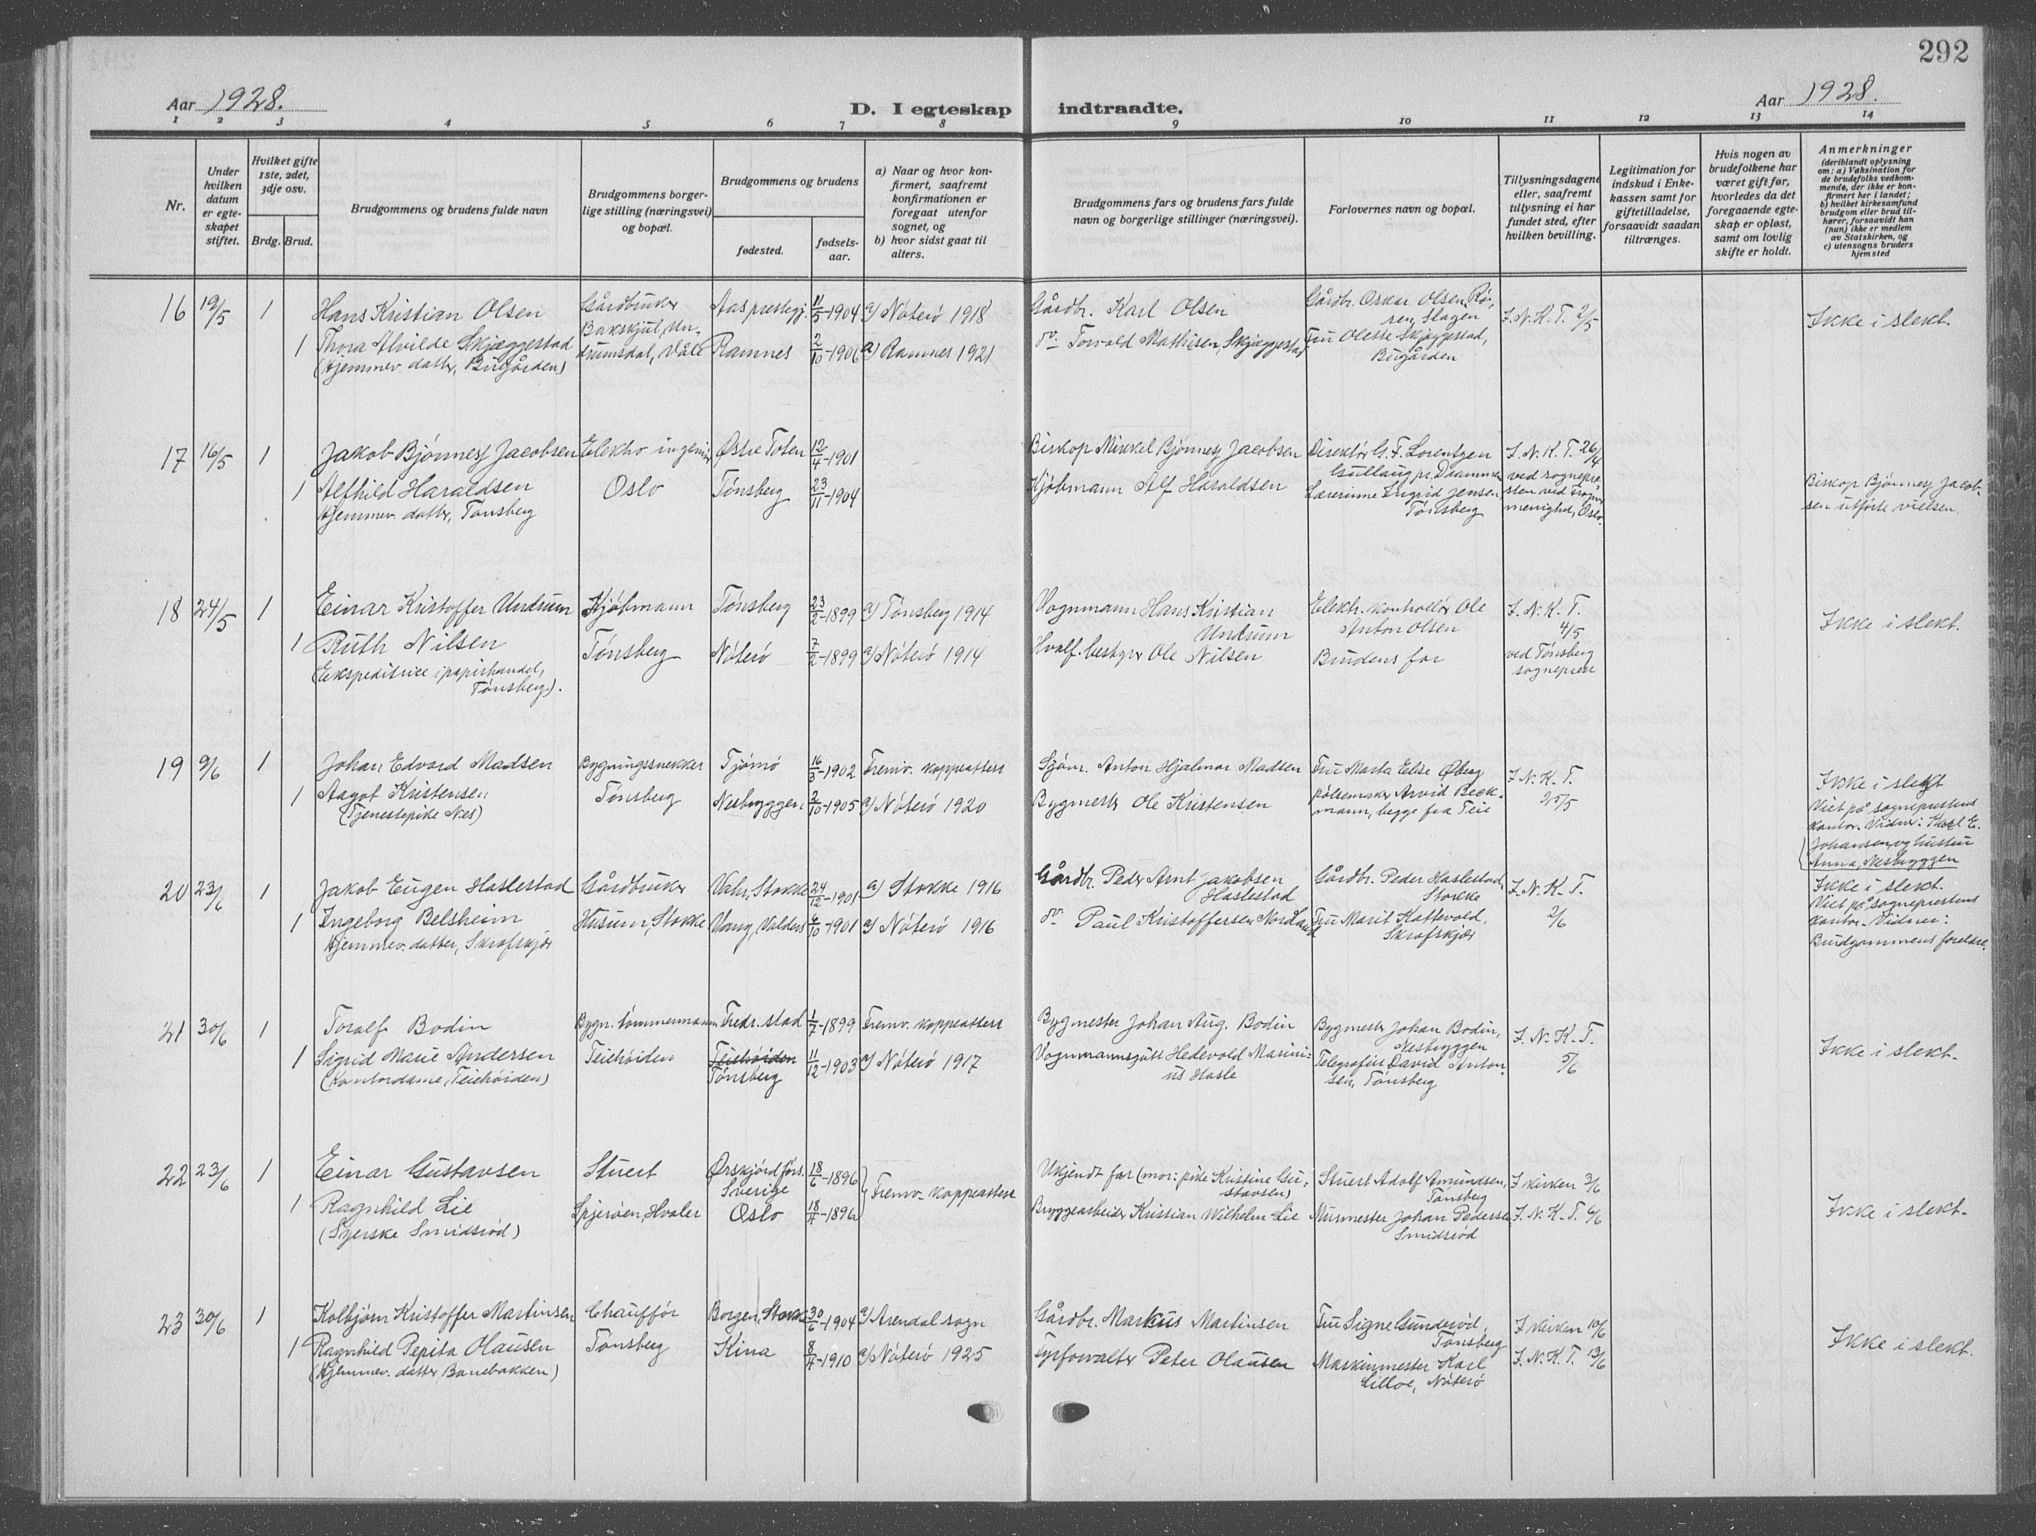 292
Aar 1928.
D. I egteskap indtraadte.
Aar 1928.
1 2 3 4 5 6 7 8 9 10 11 12 13 14
Nr.
Under hvilken datum er egteskapet stiftet.
Hvilket gifte 1ste, 2det, 3dje osv.
Brdg. Brud.
Brudgommens og brudens fulde navn
Brudgommens borgerlige stilling (næringsvei) og bopæl.
Brudgommens og brudens
fødested.
fødselsaar.
a) Naar og hvor konfirmert, saafremt konfirmationen er foregaat utenfor sognet, og
b) hvor sidst gaat til alters.
Brudgommens fars og brudens fars fulde navn og borgerlige stillinger (næringsvei).
Forlovernes navn og bopæl.
Tillysningsdagene eller, saafremt tillysning ei har fundet sted, efter hvilken bevilling.
Legitimation for indskud i Enkekassen samt for giftetilladelse, forsaavidt saadan tiltrænges.
Hvis nogen av brudefolkene har været gift før, hvorledes da det foregaaende egteskap er opløst, samt om lovlig skifte er holdt.
Anmerkninger
(deriblandt oplysning om: a) Vaksination for de brudefolks vedkommende, der ikke er konfirmert her i landet;
b) hvilket kirkesamfund brudgom eller brud tilhører, forsaavidt han (hun) ikke er medlem av Statskirken, og
c) utensogns bruders hjemsted
16 19/5 1 Hans Kristian Olsen Gårdbruker Aas prestegj. 11/5-1904 a) Nøterø 1918 Gårdbr. Karl Olsen Gårdbr. Oskar Olsen, Røren, Slagen I.N.K.T. 2/5 Ikke i slekt.
1 Thora Alvilde Skjæggestad Bakskjul, Undrumsdal, Våle Ramnes 2/10-1906 a) Ramnes 1921 do- Torvald Mathisen, Skjæggestad Fru Olette Skjeggestad, Bugården
(Hjemmev. datter, Bugården)
17 16/5 1 Jakob Bjønnes Jacobsen Elektro ingeniør Østre Toten 12/4-1901 Biskop Mikkel Bjønnes Jacobsen Direktør G. F. Lorentzen Gullaug pr. Drammen I.N.K.T. 26/4
1 Alfhild Haraldsen Oslo Tønsberg 23/11-1904 Kjøbmann Alf Haraldsen Lærerinne Sigrid Jensen Tønsberg ved sogneprесten ved Frogn. menighed, Oslo. Biskop Bjønnes Jacobsen utførte vielsen.
Hjemmev. datter, Tønsberg
18 24/5 1 Einar Kristoffer Undrum Kjøbmann Tønsberg 23/2-1899 a) Tønsberg 1914 Vognmann Hans Kristian Undrum Elektr. kontrollør Ole Anton Olsen I.N.K.T. 4/5 Ikke i slekt.
1 Ruth Nilsen Tønsberg Nøterø 7/2-1899 a) Nøterø 1914 Hvalf. bestyrer Ole Nilsen Brudens far ved Tønsberg sogneprest
(Ekspeditrice i papirhandel, Tønsberg).
19 9/6 1 Johan Edvard Madsen Bygningssnekker Tjømø 16/3-1902 Fremv. koppeattest Sjøm. Anton Hjalmar Madsen Fru Marta Elise Øberg I.N.K.T. 25/5 Ikke i slekt
1 Aagot Kristensen Tønsberg Nesbryggen 2/10-1905 a) Nøterø 1920 Bygmester Ole Kristensen pølsemaker Arvid Beckmann, begge fra Teie Viet på sogneprestens kontor. Vidner: Karl E. Johansen og hustru Anna, Nesbryggen
(Tjenestepike Nes)
20 23/6 1 Jakob Eugen Haslestad Gårdbruker Vals, Stokke 24/12-1901 a) Stokke 1916 Gårdbr. Peder Arnt Jakobsen Haslestad Gårdbr. Peder Haslestad, Stokke I.N.K.T. 2/6 Ikke i slekt.
1 Ingeborg Belsheim Husum, Stokke Vang, Valders 6/10-1901 a) Nøterø 1916 do- Paul Kristoffersen Nordland Fru Marit Kattevold, Skrafskjær Viet på sogneprestens kontor - Vidner: Brudgommens foreldre.
Hjemmev. datter, Skrafskjær
21 30/6 1 Toralf Bodin Bygn. tømmermann Fredr.stad 1/7-1899 Fremv. koppeattest Bygmester Johan Aug. Bodin Bygmester Johan Bodin, Nesbryggen I.N.K.T. 5/6 Ikke i slekt.
1 Sigrid Marie Andersen Teiehøiden Teiehøiden Tønsberg 11/12-1903 a) Nøterø 1917 Vognmannsgutt Hedevold Marinius Hasle Telegrafist David Antonsen, Tønsberg
(Kontordame, Teiehøiden)
22 23/6 1 Einar Gustavsen Stuert Ørskjørd førs. Sverige 18/6-1896 Fremv. koppeattest Ukjendt far (mor: pike Kristine Gustavsen) Stuert Adolf Amundsen, Tønsberg I kirken 3/6
1 Ragnhild Lie Spjerøen, Hvaler Oslo 18/4-1896 Bryggearbeider Kristian Wilhelm Lie Murmester Johan Pedersen Smidsrød I.N.K.T. 6/6 Ikke i slekt.
(Syerske Smidsrød)
23 30/6 1 Kolbjørn Kristoffer Martinsen Chauffør Borgen, Stokke 30/6-1904 a) Arendal sogn Gårdbr. Markus Martinsen Fru Signe Gunderød, Tønsberg I kirken 10/6
1 Ragnhild Pepita Olausen Tønsberg Kina 8/4-1910 a) Nøterø 1925 Fyrforvalter Peter Olausen Maskinmester Karl Lilloe, Nøterø I.N.K.T. 13/6 Ikke i slekt.
(Hjemmev. datter Banebakken)